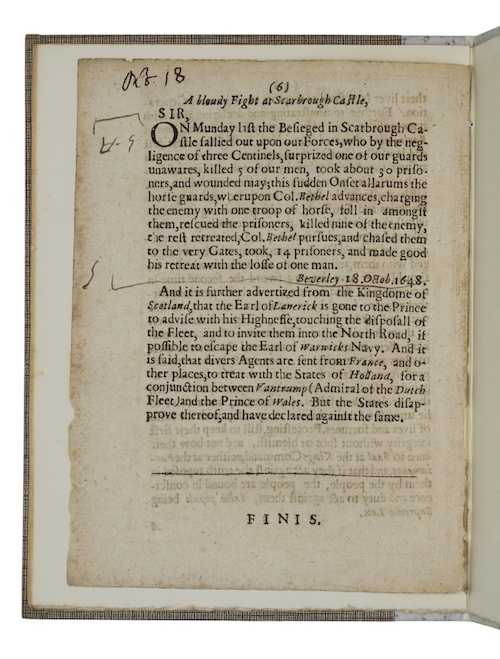 Octob. 18
(6)
A bloudy Fight at Scarbrough Castle,
SIR,
ON Munday last the Besieged in Scarbrough Ca-
stle sallied out upon our Forces, who by the neg-
ligence of three Centinels, surprized one of our guards
unawares, killed 5 of our men, took about 30 priso-
ners, and wounded may; this sudden Onset allarums the
horse guards, wherupon Col. Bethel advances, charging
the enemy with one troop of horse, fell in amongst
them, rescued the prisoners, killed nine of the enemy,
the rest retreated, Col. Bethel pursues, and chased them
to the very Gates, took, 14 prisoners, and made good
his retreat with the losse of one man.
Beverley 18. Octob. 1648.
And it is further advertized from the Kingdome of
Scotland, that the Earl of Lanerick is gone to the Prince
to advise with his Highnesse, touching the disposall of
the Fleet, and to invite them into the North Road, if
possible to escape the Earl of Warwicks Navy. And it
is said, that divers Agents are sent from France, and o-
ther places, to treat with the States of Holland, for a
conjunction between Vantrump (Admiral of the Dutch
Fleet) and the Prince of Wales. But the States disap-
prove thereof, and have declared against the same.
FINIS.